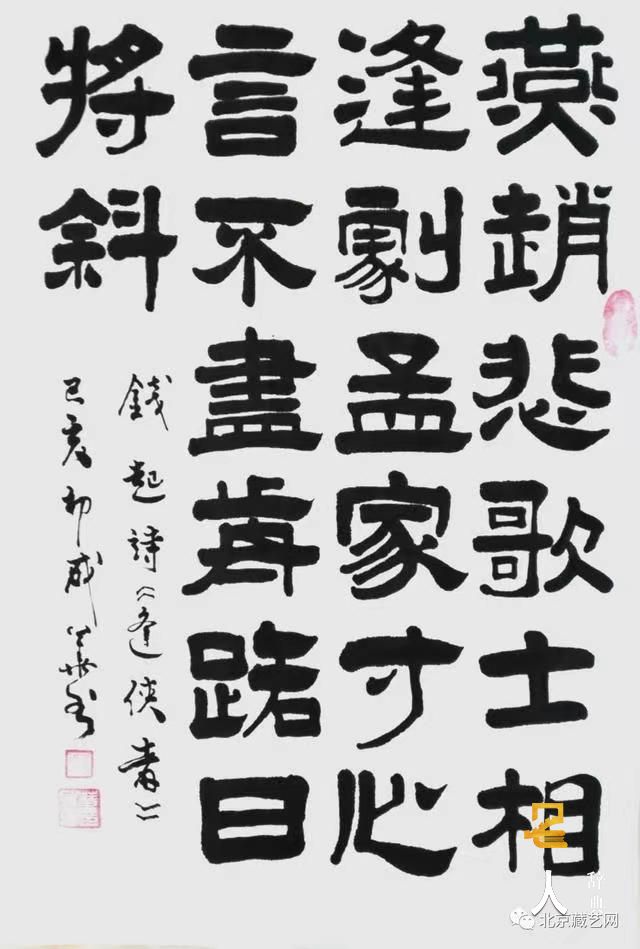 燕趙悲歌士相
逢劇孟家寸心
言不盡歬路日
將斜
錢起詩《逢俠者》
己亥
人
辞典
北京藏艺网